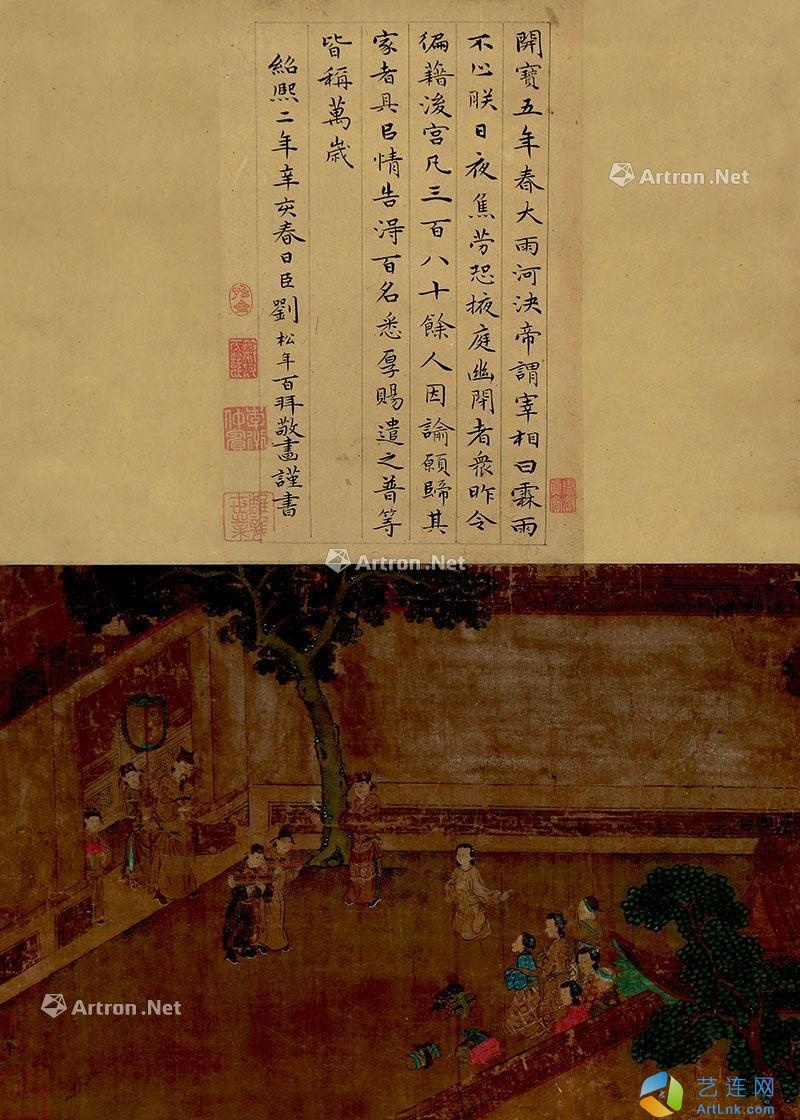 開寶五年春大雨河決帝謂宰相曰霖雨
不止朕日夜焦劳恐掖庭幽閉者衆昨令
徧藉後宮凡三百八十餘人因諭願歸其
家者具㠯情告淂百名悉厚賜遣之普等
皆稱萬歳
紹熙二年辛亥春日臣劉松年百拜敬畫謹書
Artron.Net
Artron.Net
Artron.Net
艺连网
ArtLnk.com